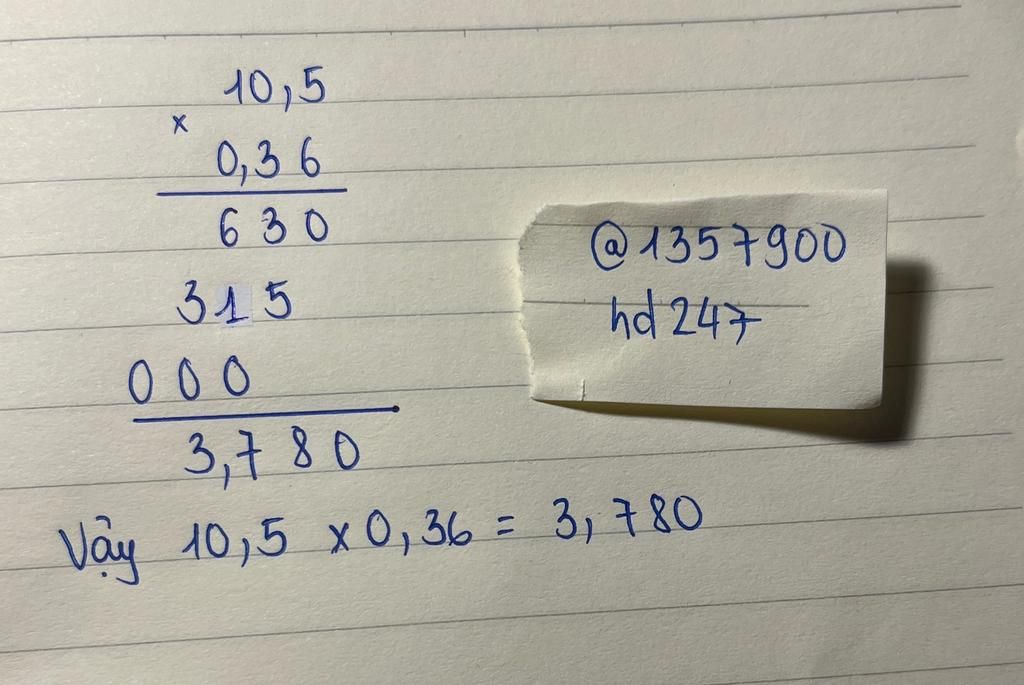 10,5
x
0,36
630
315
000
3,780
Vậy 10,5 x 0,36 = 3,780
@1357900
hd247